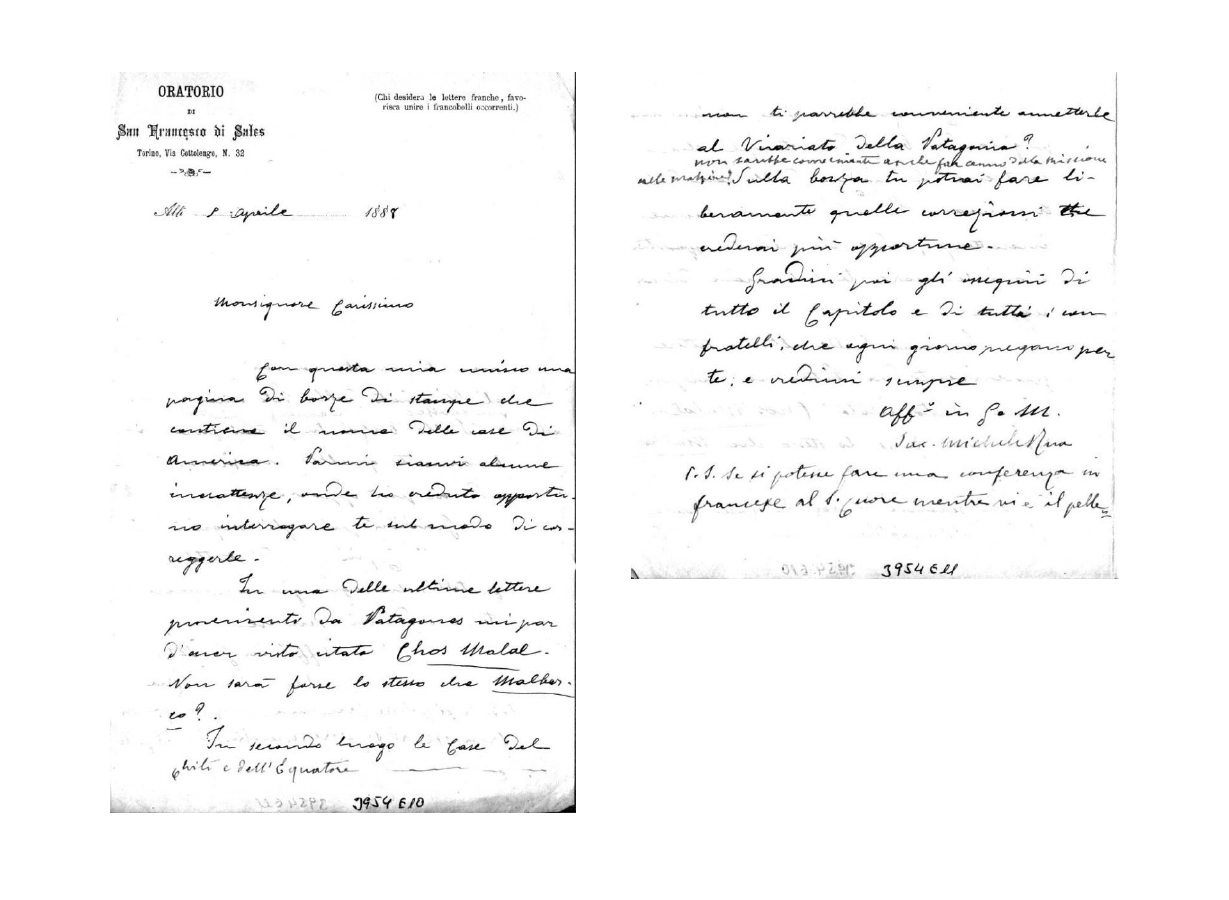 ORATORIO
DI
San Francesco di Sales
Torino, Via Cottolengo, N. 32
(Chi desidera le lettere franche, favo-
risca unire i francobolli occorrenti.)
aprile 188
Monsignore Carissimo
Con questa mia unisco una
pagina di bozze di stampe che
contiene il nome delle case di
America. Parmi sianvi alcune
inesattezze, onde ho creduto opportu-
no interrogare te sul modo di cor-
reggerle.
In una delle ultime lettere
proveniente da Patagones mi par
d'aver visto citato Chos Malal.
Non sarà forse lo stesso che Malbar-
co?
In secondo luogo le Case del
Chilì e dell'Equatore
J954 E10
non ti parrebbe conveniente annetterle
al Vicariato della Patagonia?
non sarebbe conveniente anche far cenno della missione
nelle Malvine? Sulla bozza tu potrai fare li-
beramente quelle correzioni che
crederai più opportune.
Gradisci poi gli ossequii di
tutto il Capitolo e di tutti i con
fratelli, che ogni giorno pregano per
te, e credimi sempre
Aff.º in G. e M.
Sac. Michele Rua
P.S. Se si potesse fare una conferenza in
francese al S. Cuore mentre vi è il pelle-
J954 E11